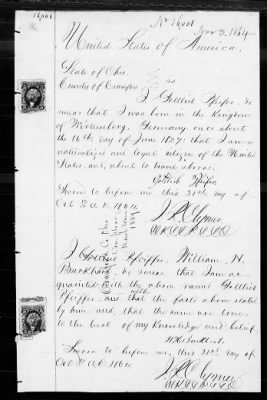 16,901
No 16901
Nov 3, 1864
United States of America.
State of Ohio
County of Crawford ss
I Gottlieb Pfeifer, do
swear that I was born in the Kingdom
of Wirtemberg, Germany on or about
the 16th day of June 1827; that I am a
naturalized and legal citizen of the United
States and about to travel abroad.
Gottlieb Pfeifer
Sworn to before me this 31st day of
Oct A.D. 1864
I William N.
Burkhart do swear that I am ac-
quainted with the above named Gottlieb
Pfeiffer and that the facts above stated
by him and that the same are true
to the best of my Knowledge and belief.
Sworn to before me, this 31st day of
Oct A.D. 1864